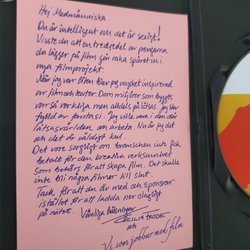 Hej Medmänniska
Du är intelligent om det är sexigt!
Visste du att en tredjedel av pengarna
du lägger på film går raka spåret in i
nya filmprojekt.
När jag var liten blev jag mycket inspirerad
av filmarkitekter. Dom miljöer som byggts
var så verkliga men alldeles på låtsas. Jag blev
fylld av fantasi. Jag ville inn i den där
låtsasvärlden och arbeta. Nu är jag det
och det är väldigt kul.
Det vore sorgligt om branschen inte fick
betalt för den kreativa verksamhet
som behövs för att skapa film. Det skulle
inte bli några filmer till slut.
Tack för att du är med och sponsrar
istället för att ladda ner olagligt
på nätet. Vänliga hälsningar
och
Vi som jobbar med film